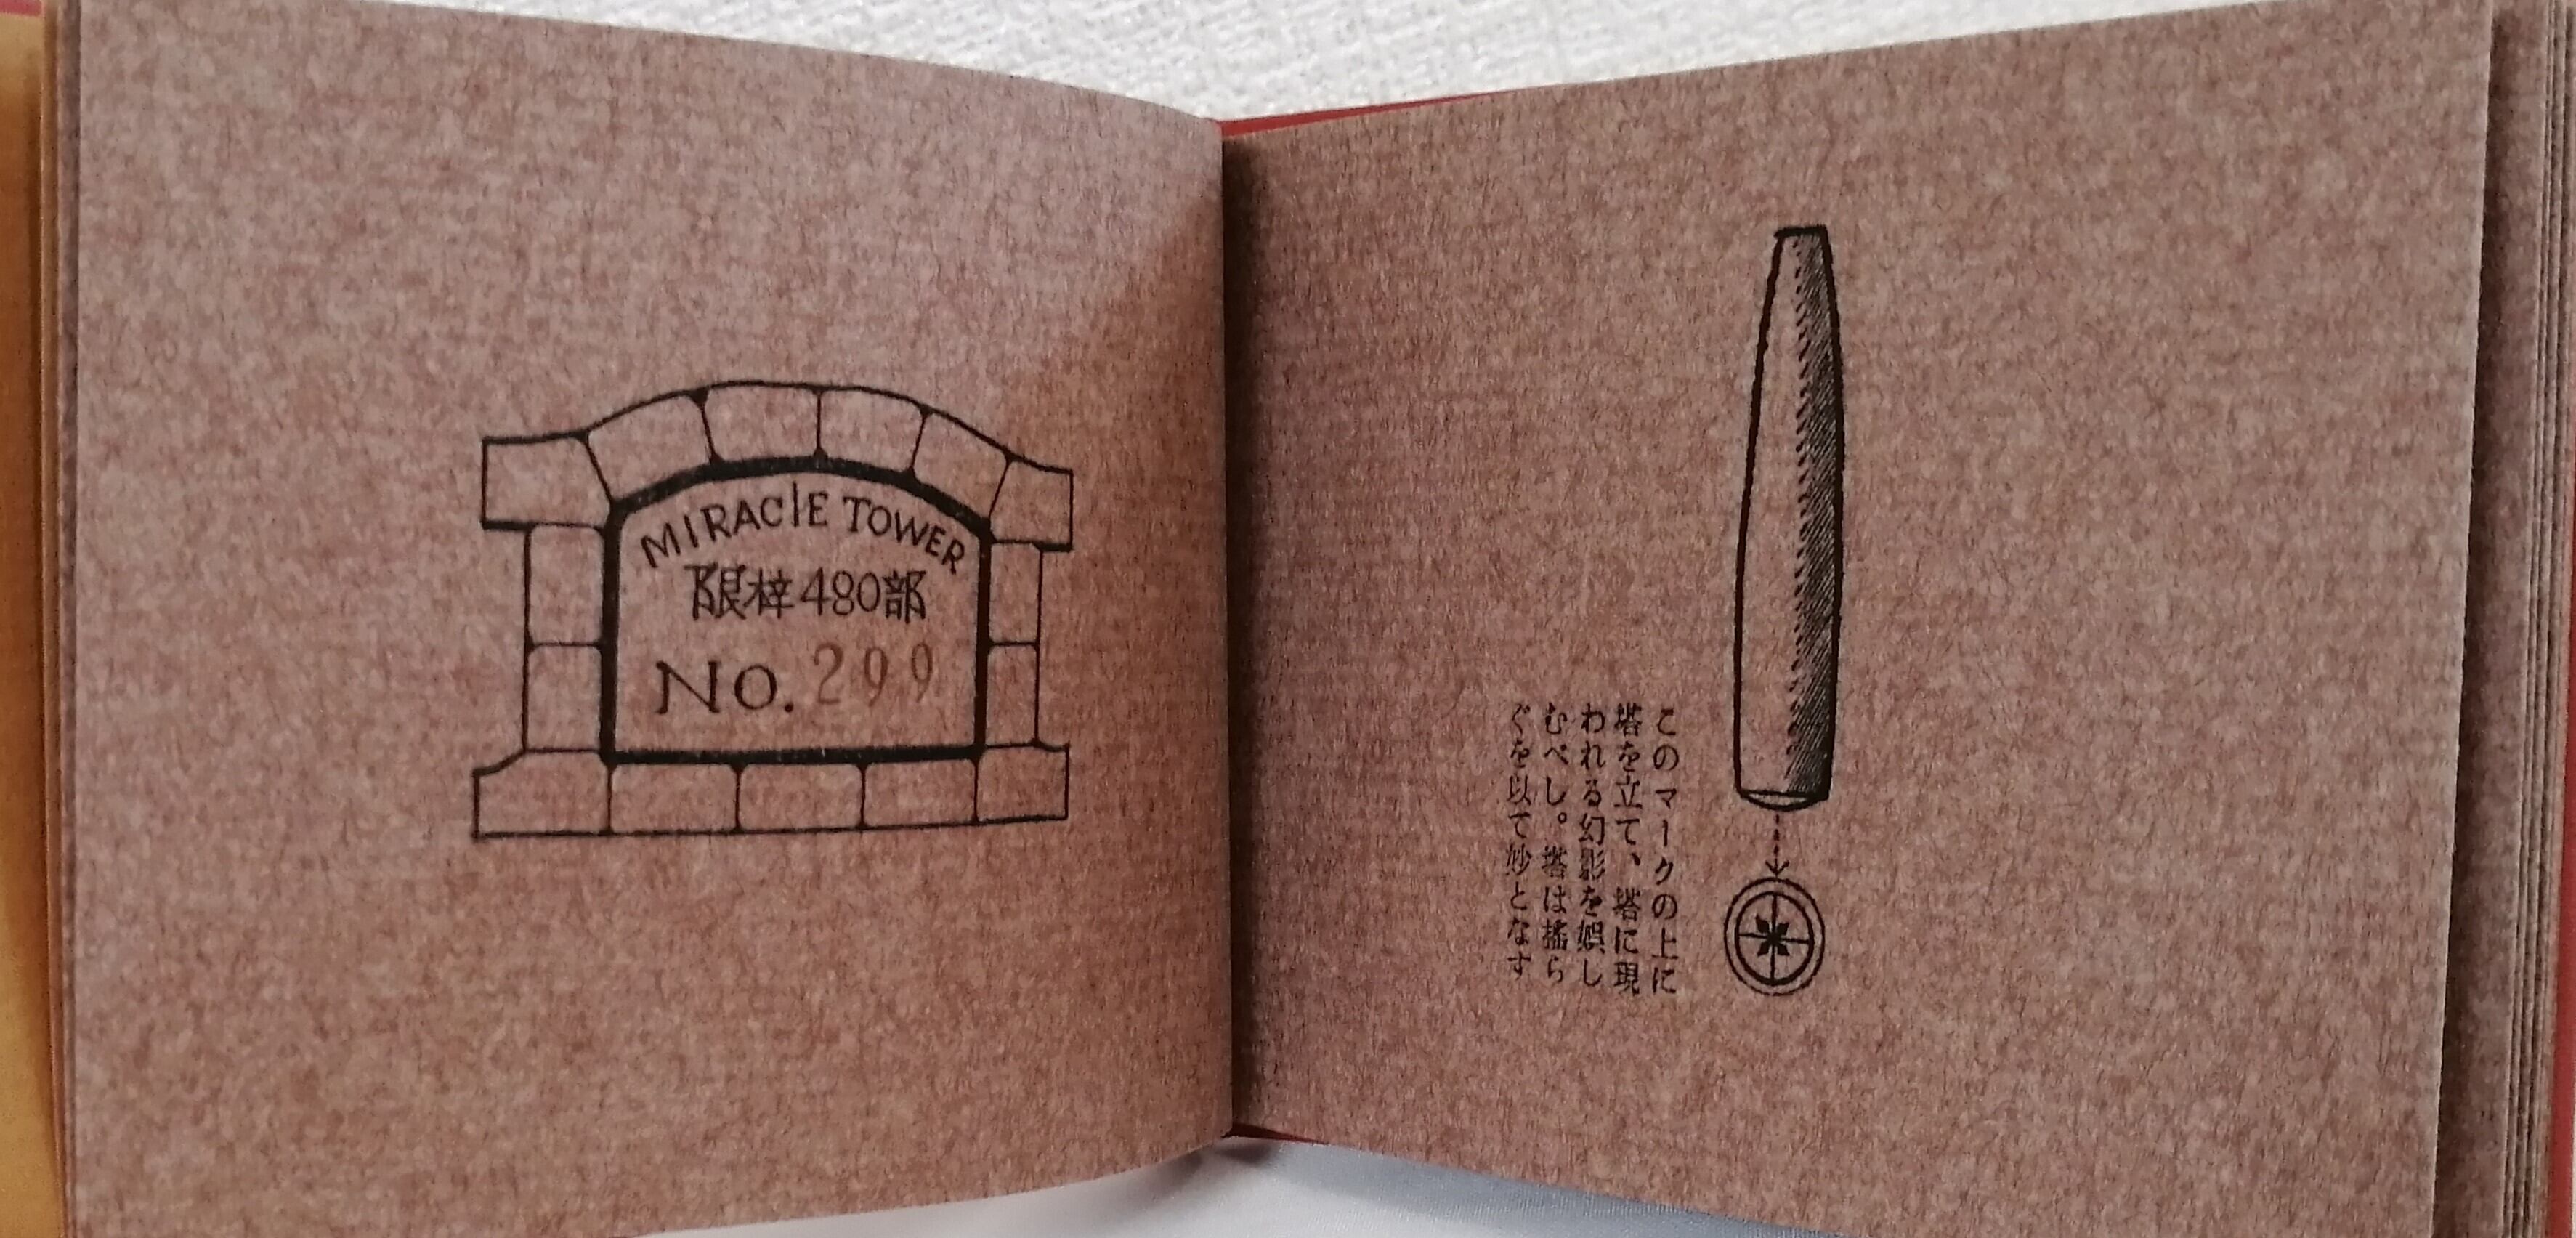 MIRACLE TOWER
限梓480部
No. 299
このマークの上に
塔を立て、塔に現
われる幻影を娯し
むべし。塔は揺ら
ぐを以て妙となす